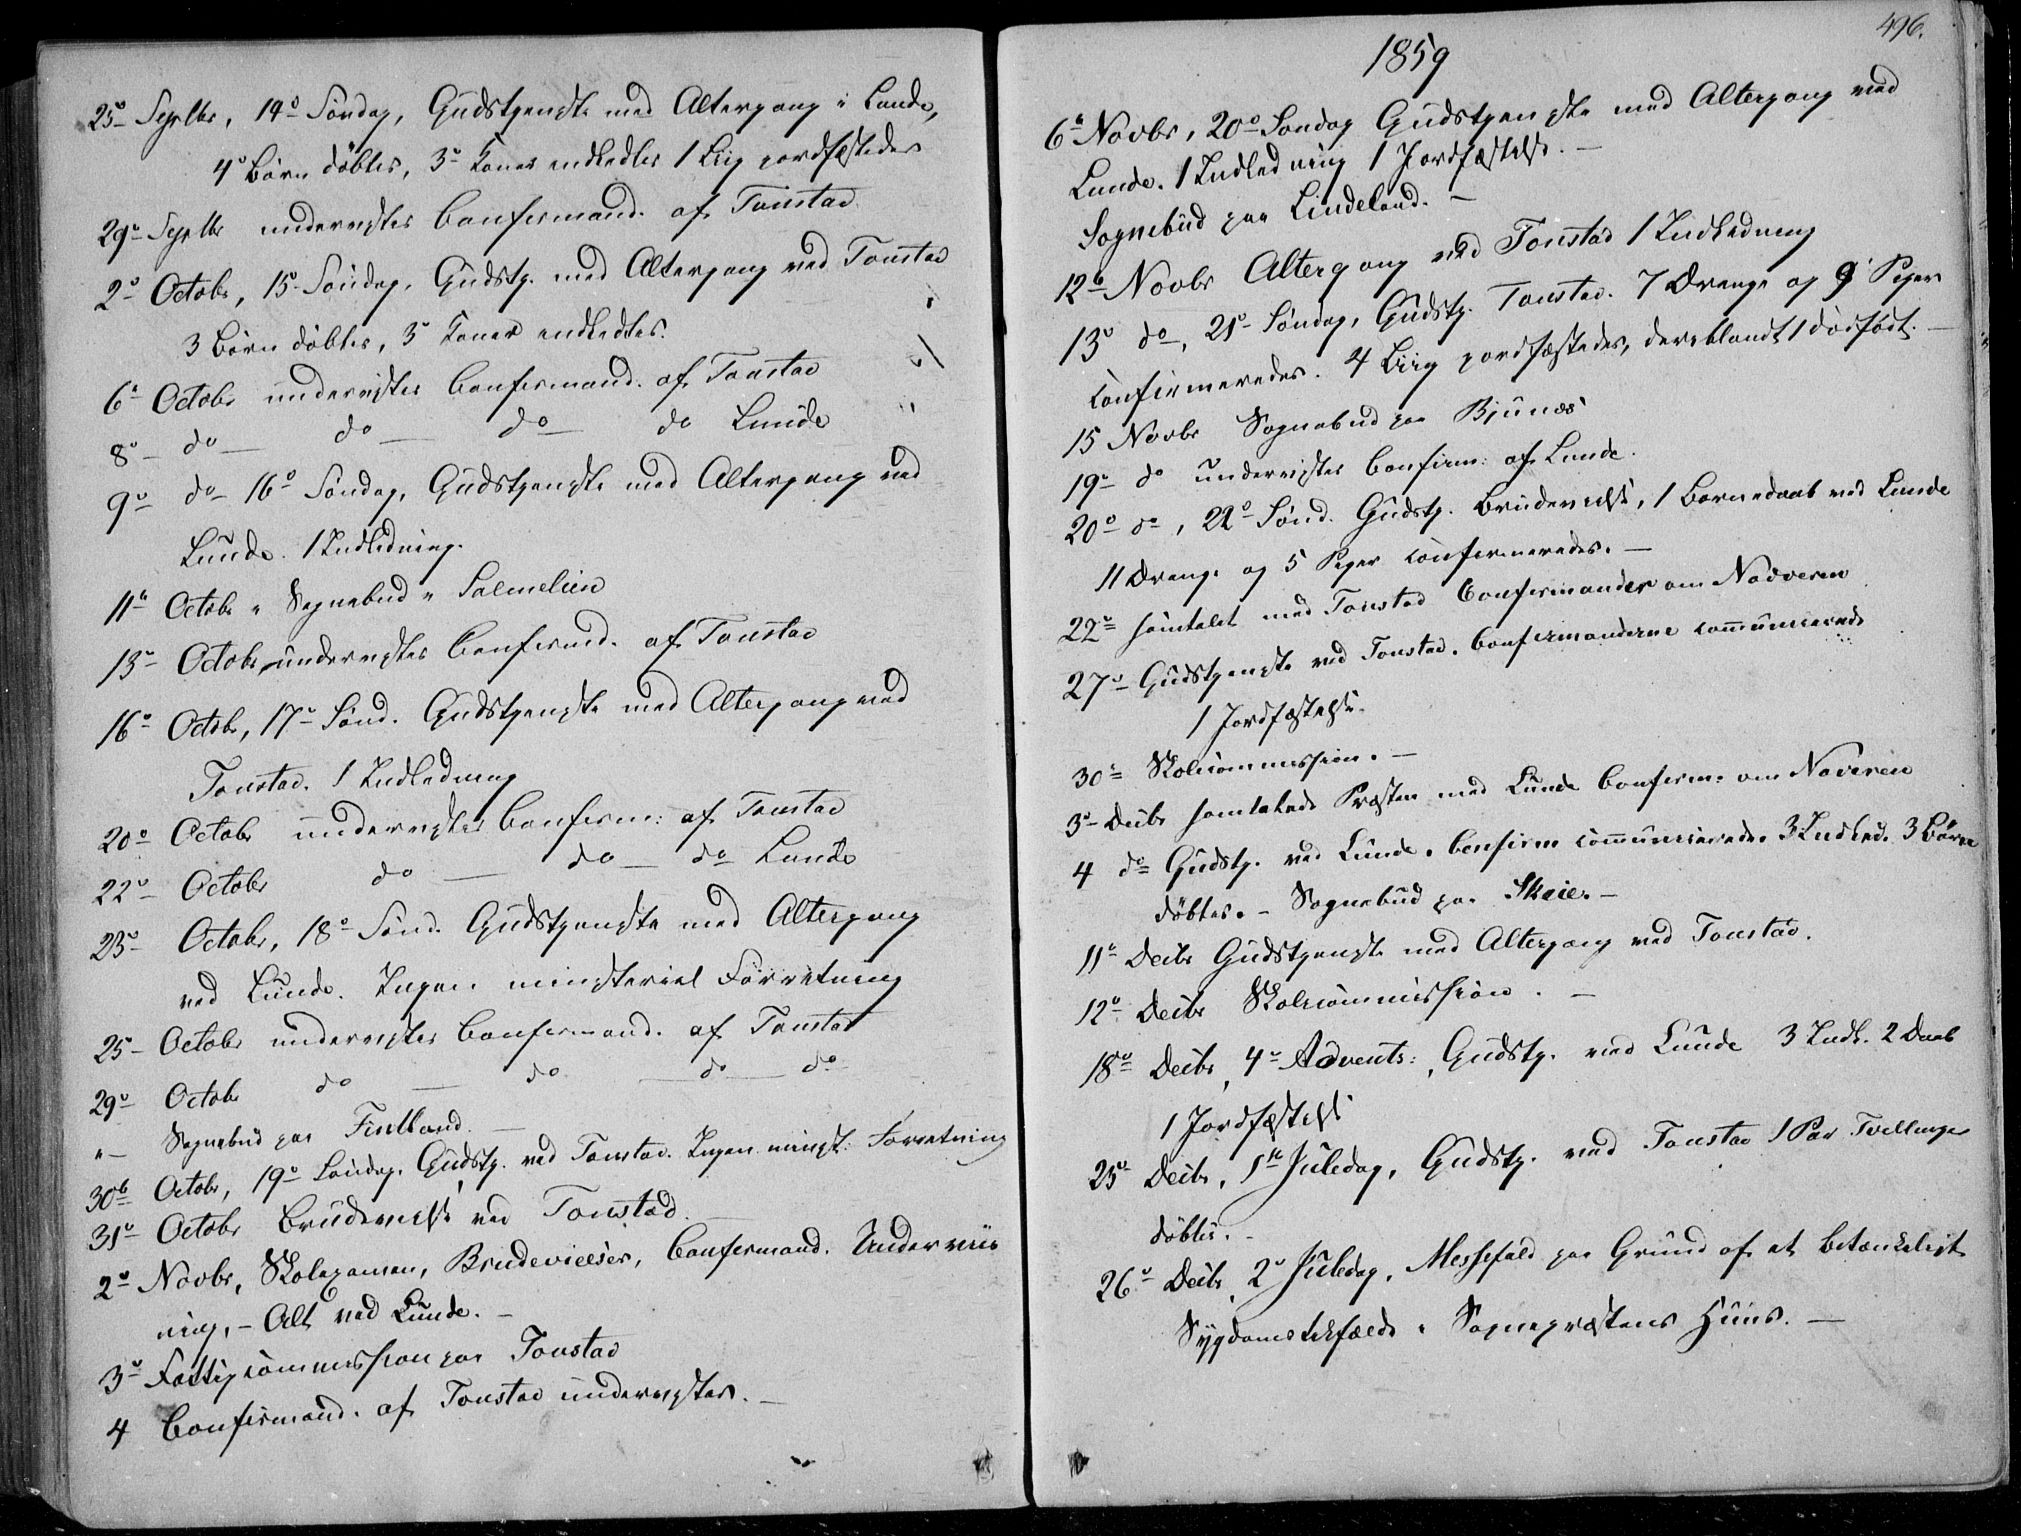 25º Septbr, 14º Søndag, Gudstjeneste med Altergang i Lunde,
4º Børn døbtes, 3º Koner indledtes 1 Liig jordfæstedes
29º Septbr undervistes Confirmand. af Tonstad
2º Octobr, 15º Søndag, Gudstj. med Altergang ved Tonstad
3 Børn døbtes, 3º Koner indledtes.
6º Octobr undervistes Confirmand. af Tonstad
8º do do do do Lunde
9º do 16º Søndag, Gudstjeneste med Altergang ved
Lunde. 1 Indledning.
11º Octobr Sognebud Salmelien
13º Octobr undervistes Confirmd. af Tonstad
16º Octobr, 17º Sønd. Gudstjeneste med Altergang ved
Tonstad. 1 Indledning
20º Octobr undervistes Confirm: af Tonstad
22º Octobr do do do Lunde
23º Octobr, 18º Sønd. Gudstjeneste med Altergang
ved Lunde. Ingen ministeriel Forretning
25 Octobr undervistes Confirmand. af Tonstad
29º Octobr do do do do
" Sognebud paa Fintland. —
30º Octobr, 19º Søndag. Gudstj. ved Tonstad. Ingen minist: Forretning
31º Octobr Brudevielse ved Tonstad.
2º Novbr, Skolexamen, Brudevielser, Confirmand. Underviis
ning, – Alt ved Lunde. –
3º Fattigcommission paa Tonstad
4 Confirmand. af Tonstad undervistes. —
496.
1859
6º Novbr, 20º Søndag Gudstjeneste med Altergang ved
Lunde. 1 Indledning 1 Jordfæstelse. —
Sognebud paa Lindeland. —
12º Novbr Altergang ved Tonstad 1 Indledning
13º do, 21º Søndag, Gudstj. Tonstad. 7 Drenge og 9 Piger
confirmeredes. 4 Liig jordfæstedes, deriblandt 1 dødfødt. —
15 Novbr Sognebud paa Bjunes
19º do undervistes Confirm: af Lunde.
20º do, 22º Sønd. Gudstj. Brudevielse, 1 Barnedaab ved Lunde
11 Drenge og 5 Piger confirmeredes. —
22º samtalet med Tonstad Confirmander om Nadveren
27º Gudstjeneste ved Tonstad. Confirmanderne communicerede
1 Jordfæstelse.
30º Skolecommission. —
3º Decbr samtalede Præsten med Lunde Confirm. om Nadveren
4 do Gudstj. ved Lunde. Confirm communicerede. 3 Indled. 3 Børn
døbtes. – Sognebud paa Skeie. –
11º Decbr Gudstjeneste med Altergang ved Tonstad.
12º Decbr Skolecommission. —
18º Decbr, 4º Advents:, Gudstj. ved Lunde 3 Indl. 2 Daab
1 Jordfæstelse
25º Decbr, 1ste Juledag, Gudstj. ved Tonstad 1 Par Tvillinger
døbtes. –
26º Decbr, 2º Juledag, Messefald paa Grund af et betænkeligt
Sygdomstilfælde i Sognepræstens Huus. —